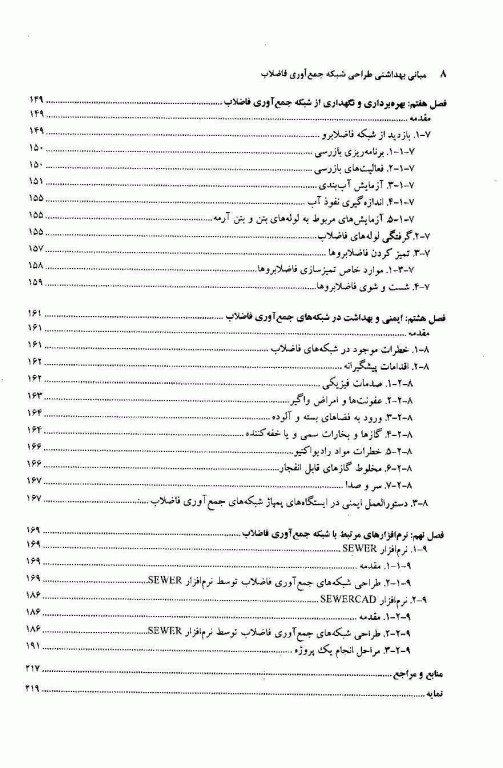 ۸ مبانی بهداشتی طراحی شبکه جمع‌آوری فاضلاب
فصل هفتم: بهره‌برداری و نگهداری از شبکه جمع‌آوری فاضلاب ۱۴۹
مقدمه ۱۴۹
۷-۱. بازدید از شبکه فاضلابرو ۱۴۹
۷-۱-۱. برنامه‌ریزی بازرسی ۱۵۰
۷-۱-۲. فعالیت‌های بازرسی ۱۵۰
۷-۱-۳. آزمایش آب‌بندی ۱۵۱
۷-۱-۴. اندازه‌گیری نفوذ آب ۱۵۵
۷-۱-۵. آزمایش‌های مربوط به لوله‌های بتن و بتن آرمه ۱۵۵
۷-۲. گرفتگی لوله‌های فاضلاب ۱۵۵
۷-۳. تمیز کردن فاضلابروها ۱۵۷
۷-۳-۱. موارد خاص تمیزسازی فاضلابروها ۱۵۸
۷-۴. شست و شوی فاضلابروها ۱۵۹
فصل هشتم: ایمنی و بهداشت در شبکه‌های جمع‌آوری فاضلاب ۱۶۱
مقدمه ۱۶۱
۸-۱. خطرات موجود در شبکه‌های فاضلاب ۱۶۱
۸-۲. اقدامات پیشگیرانه ۱۶۲
۸-۲-۱. صدمات فیزیکی ۱۶۲
۸-۲-۲. عفونت‌ها و امراض واگیر ۱۶۳
۸-۲-۳. ورود به فضاهای بسته و آلوده ۱۶۴
۸-۲-۴. گازها و بخارات سمی و یا خفه‌کننده ۱۶۴
۸-۲-۵. خطرات مواد رادیواکتیو ۱۶۶
۸-۲-۶. مخلوط گازهای قابل انفجار ۱۶۶
۸-۲-۷. سر و صدا ۱۶۷
۸-۳. دستورالعمل ایمنی در ایستگاه‌های پمپاژ شبکه‌های جمع آوری فاضلاب ۱۶۷
فصل نهم: نرم‌افزارهای مرتبط با شبکه جمع‌آوری فاضلاب ۱۶۹
۹-۱. نرم‌افزار SEWER ۱۶۹
۹-۱-۱. مقدمه ۱۶۹
۹-۱-۲. طراحی شبکه‌های جمع‌آوری فاضلاب توسط نرم‌افزار SEWER ۱۶۹
۹-۲. نرم‌افزار SEWERCAD ۱۸۶
۹-۲-۱. مقدمه ۱۸۶
۹-۲-۲. طراحی شبکه‌های جمع‌آوری فاضلاب توسط نرم‌افزار SEWER ۱۸۶
۹-۲-۳. مراحل انجام یک پروژه ۱۹۱
منابع و مراجع ۲۱۷
نمایه ۲۱۹